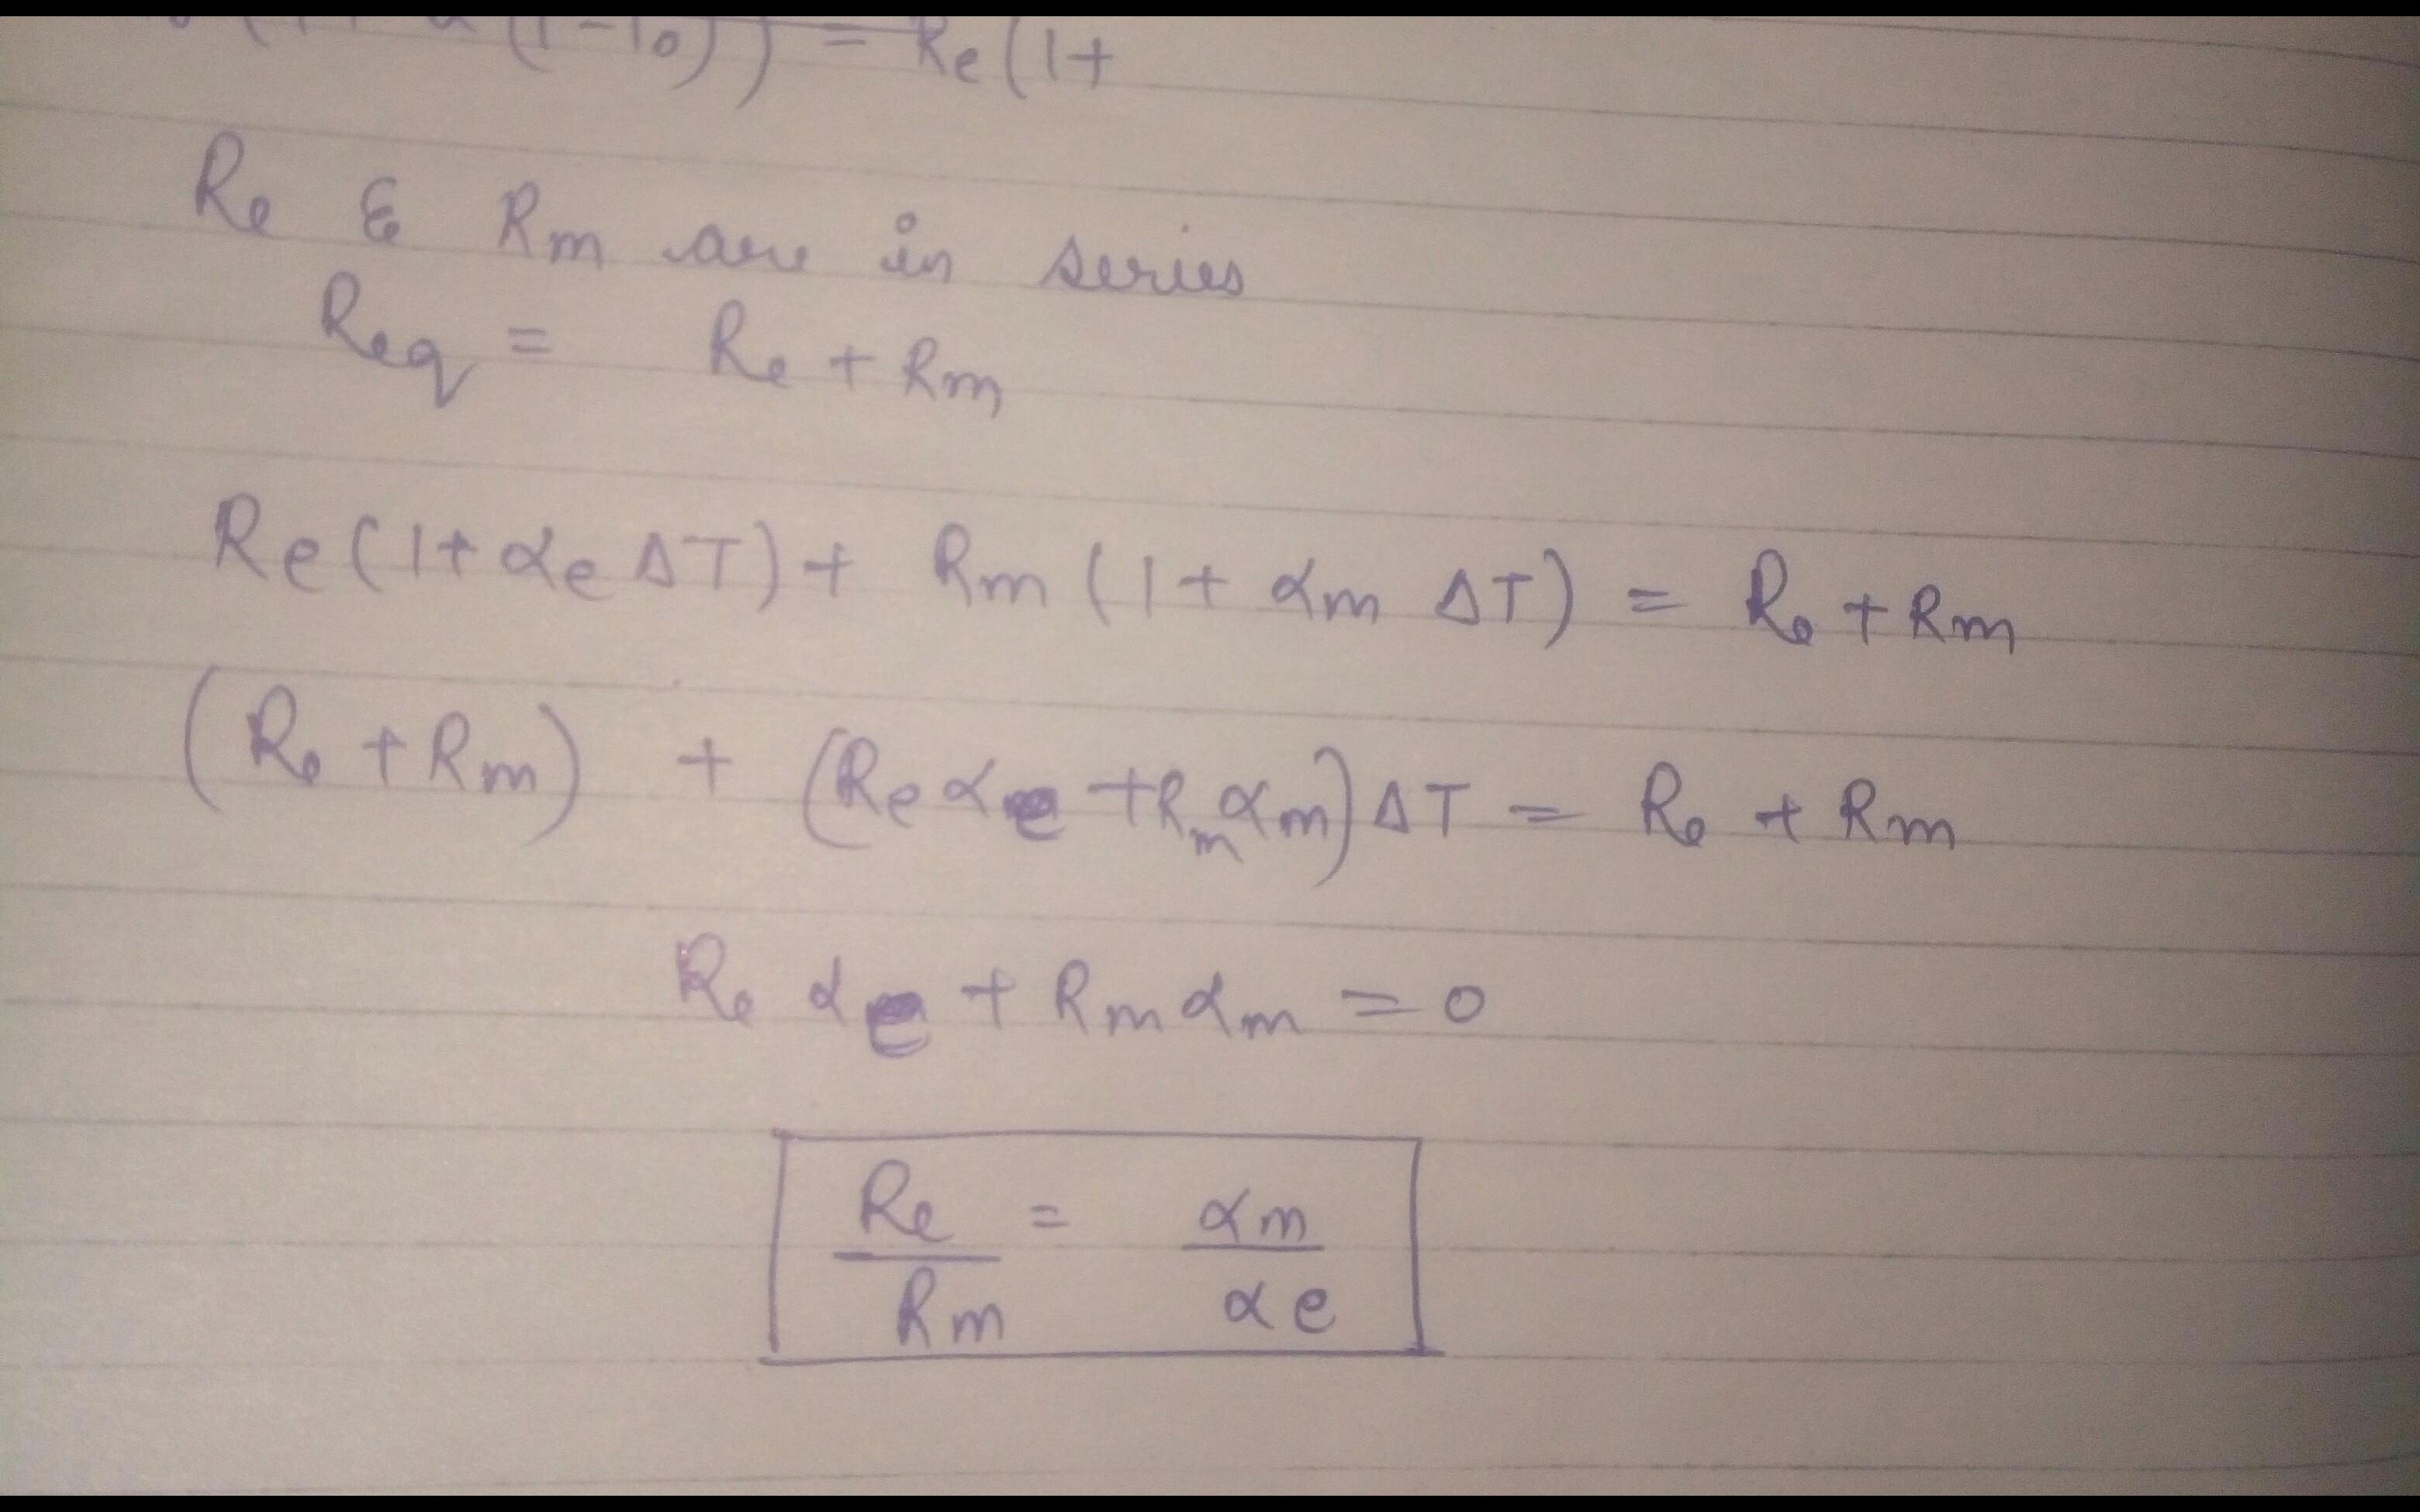 (1-T0)) = Re (1+
Re & Rm are in series
Req = Re + Rm
Re (1+ αe ΔT) + Rm (1 + αm ΔT) = Re + Rm
(Re + Rm) + (Re αe + Rm αm) ΔT = Re + Rm
Re αe + Rm αm = 0
Re/Rm = αm/αe